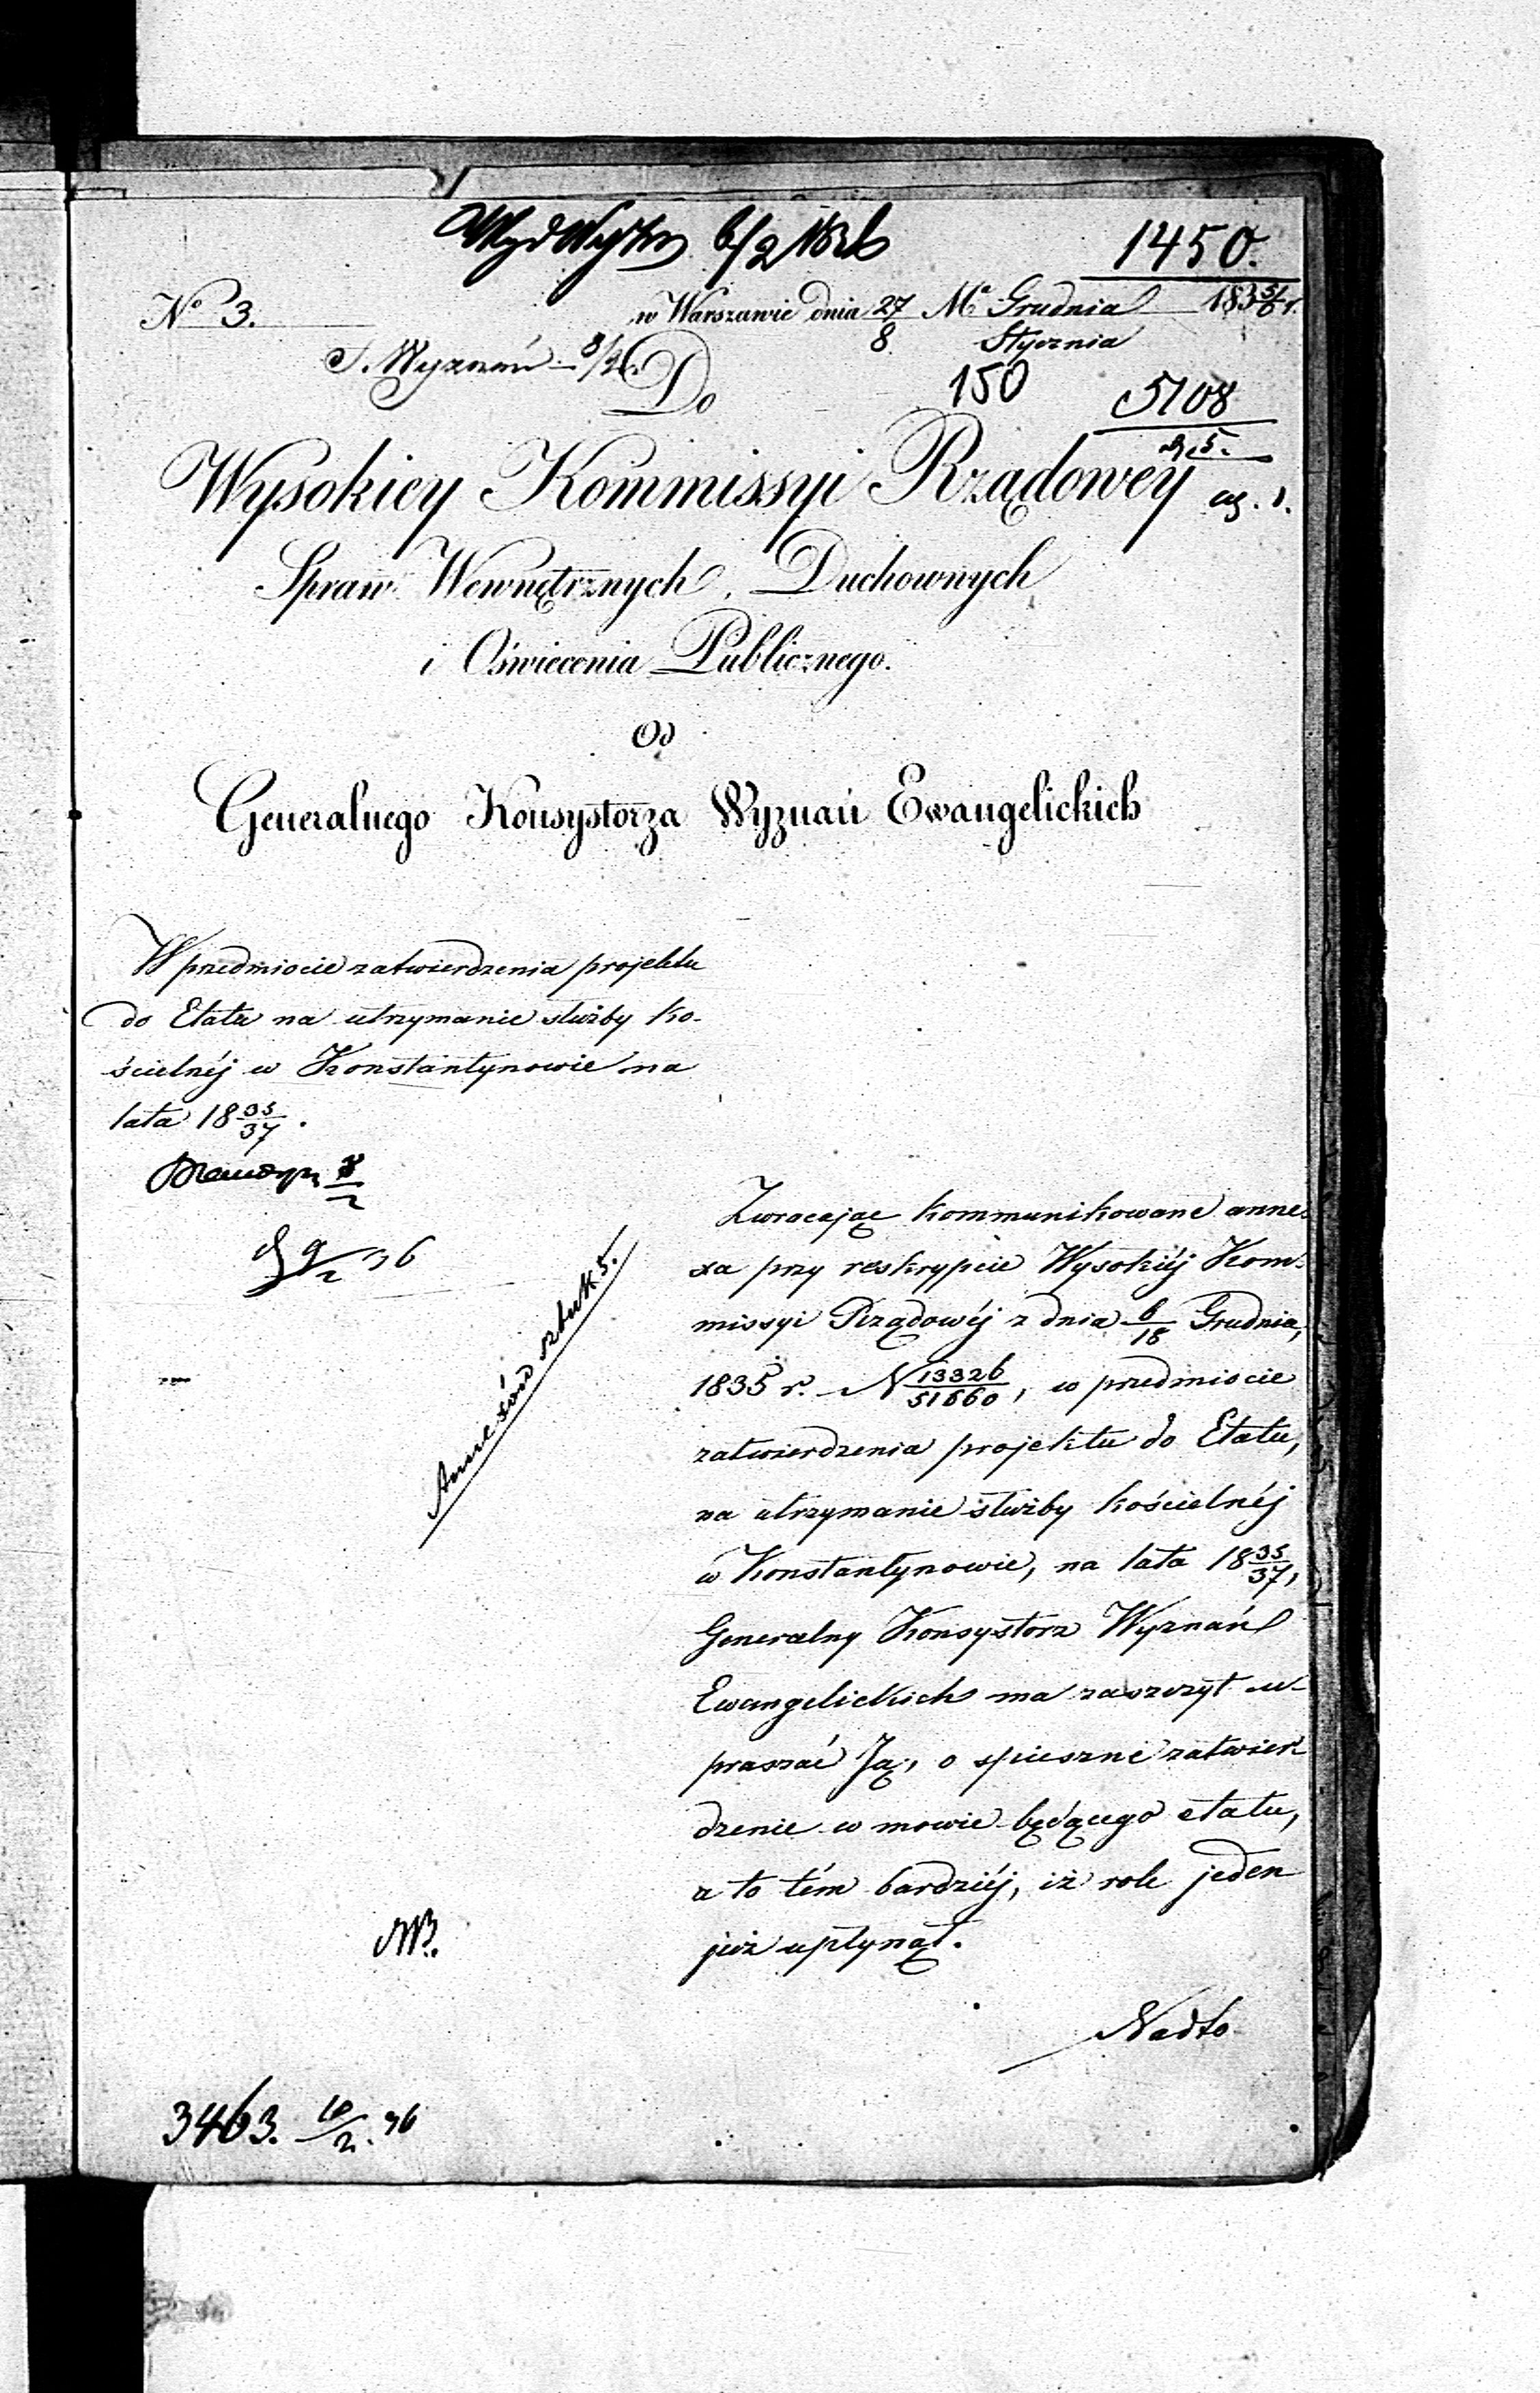 6/2 1836
1450.
No 3.
w Warszawie dnia 27/8 Ma Grudnia/Stycznia 1835/6 r.
S. Wyznań 8/2
Do
150
5108
Wysokiey Kommissyi Rządowey
Spraw Wewnętrznych, Duchownych
i Oświecenia Publicznego.
Od
Generalnego Konsystorza Wyznań Ewangelickich
W przedmiocie zatwierdzenia projektu
do Etatu na utrzymanie służby ko-
ścielnéj w Konstantynowie na
lata 18 35/37.
9/2 36
Annexów sztuk 5.
Zwracając kommunikowane anne-
xa przy reskrypcie Wysokiéj Kom-
missyi Rządowéj z dnia 6/18 Grudnia,
1835 r. N 13326/51660, w przedmiocie
zatwierdzenia projektu do Etatu,
na utrzymanie służby kościelnéj
w Konstantynowie, na lata 18 35/37,
Generalny Konsystorz Wyznań
Ewangelickich ma zaszczyt u-
praszać Ją, o spieszne zatwier-
dzenie w mowie będącego etatu,
a to tém bardziéj, iż rok jeden
już upłynął.
NB.
Nadto
3463. 10/2. 36